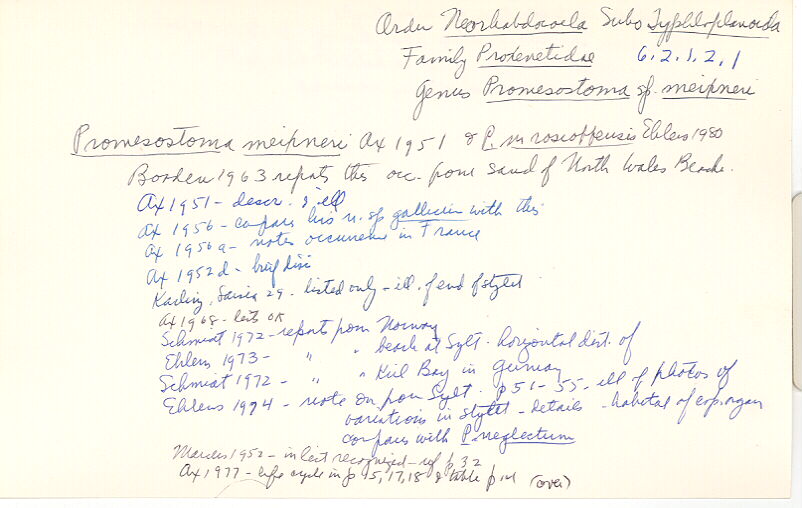 Order Neorhabdocoela Subo Typhloplanoida
Family Proxenetidae 6.2.1.2.1
Genus Promesostoma sp. meixneri
Promesostoma meixneri Ax 1951 & P. m roscoffensis Ehlers 1980
Boaden 1963 reports this occ. from sand of North Wales Beache.
Ax 1951 - descr. & ill
Ax 1956 - compares his n. sp gallicum with this
Ax 1956a - notes occurrence in France
Ax 1952d - brief disc
Karling, Suisia 29 - listed only - ill. of end of stylet
Ax 1968 - lists OK
Schmidt 1972 - reports from Norway
Ehlers 1973 - " " beach at Sylt - horizontal dist. of
Schmidt 1972 - " " Kiel Bay in Germany
Ehlers 1974 - note on from Sylt. p 51-55 - ill of photos of
variations in stylet - details - habitat of cop. organ
compares with P. neglectum
Marcus 1952 - in list recognized - ref p 32
Ax 1977 - life cycle in p 15, 17, 18 & table p 14 (over)